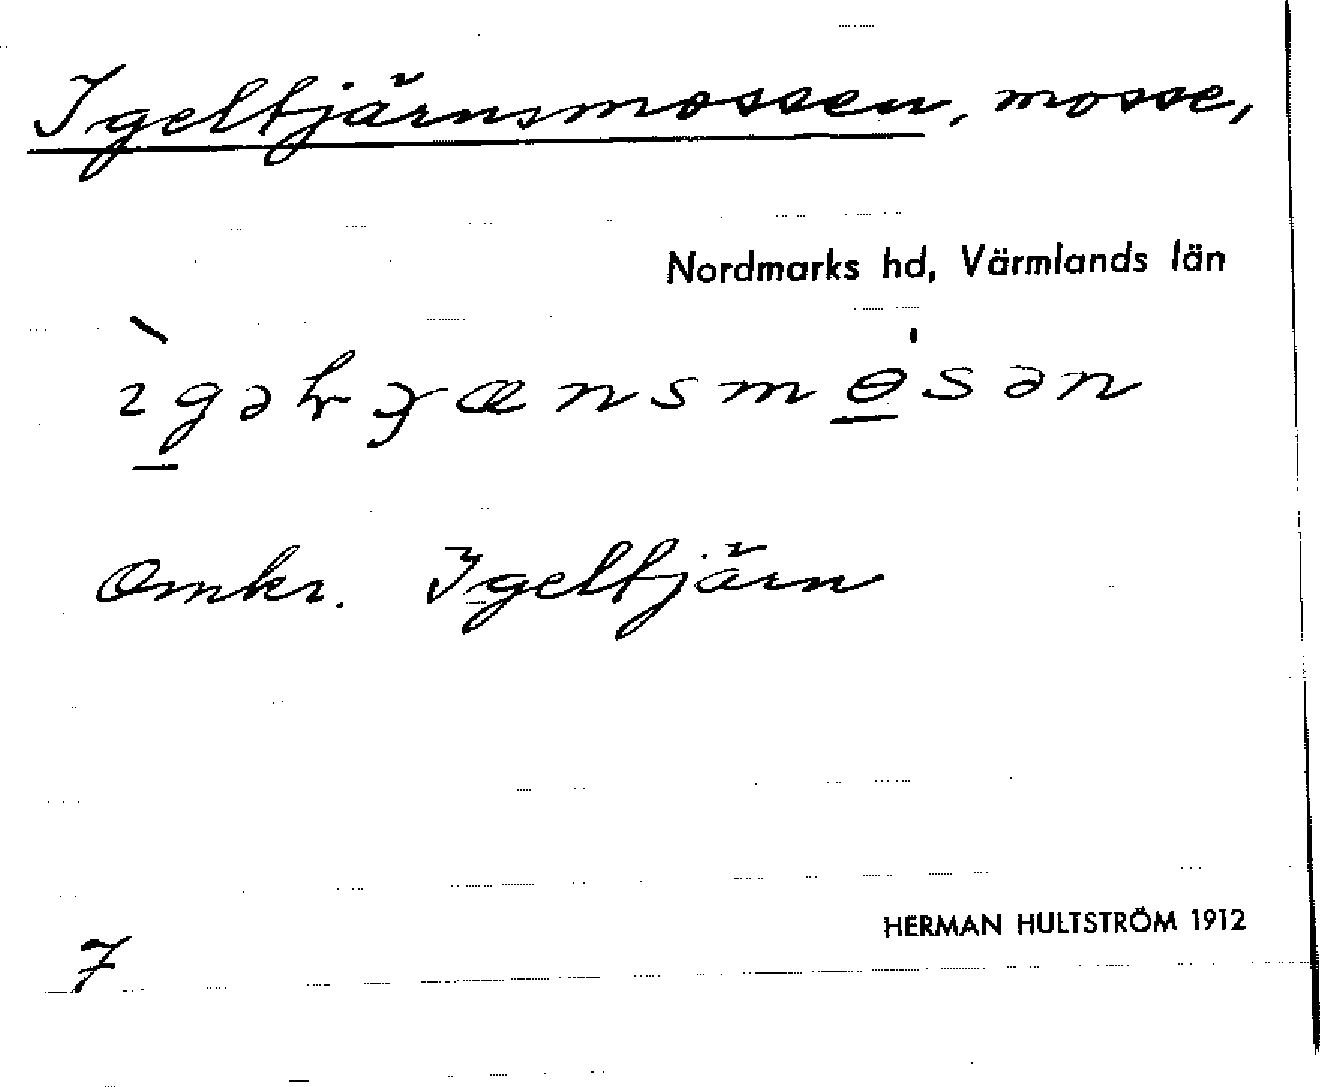 Igeltjärnsmossen, mosse,
Nordmarks hd, Värmlands län
Omkr. Igeltjärn
HERMAN HULTSTRÖM 1912
7